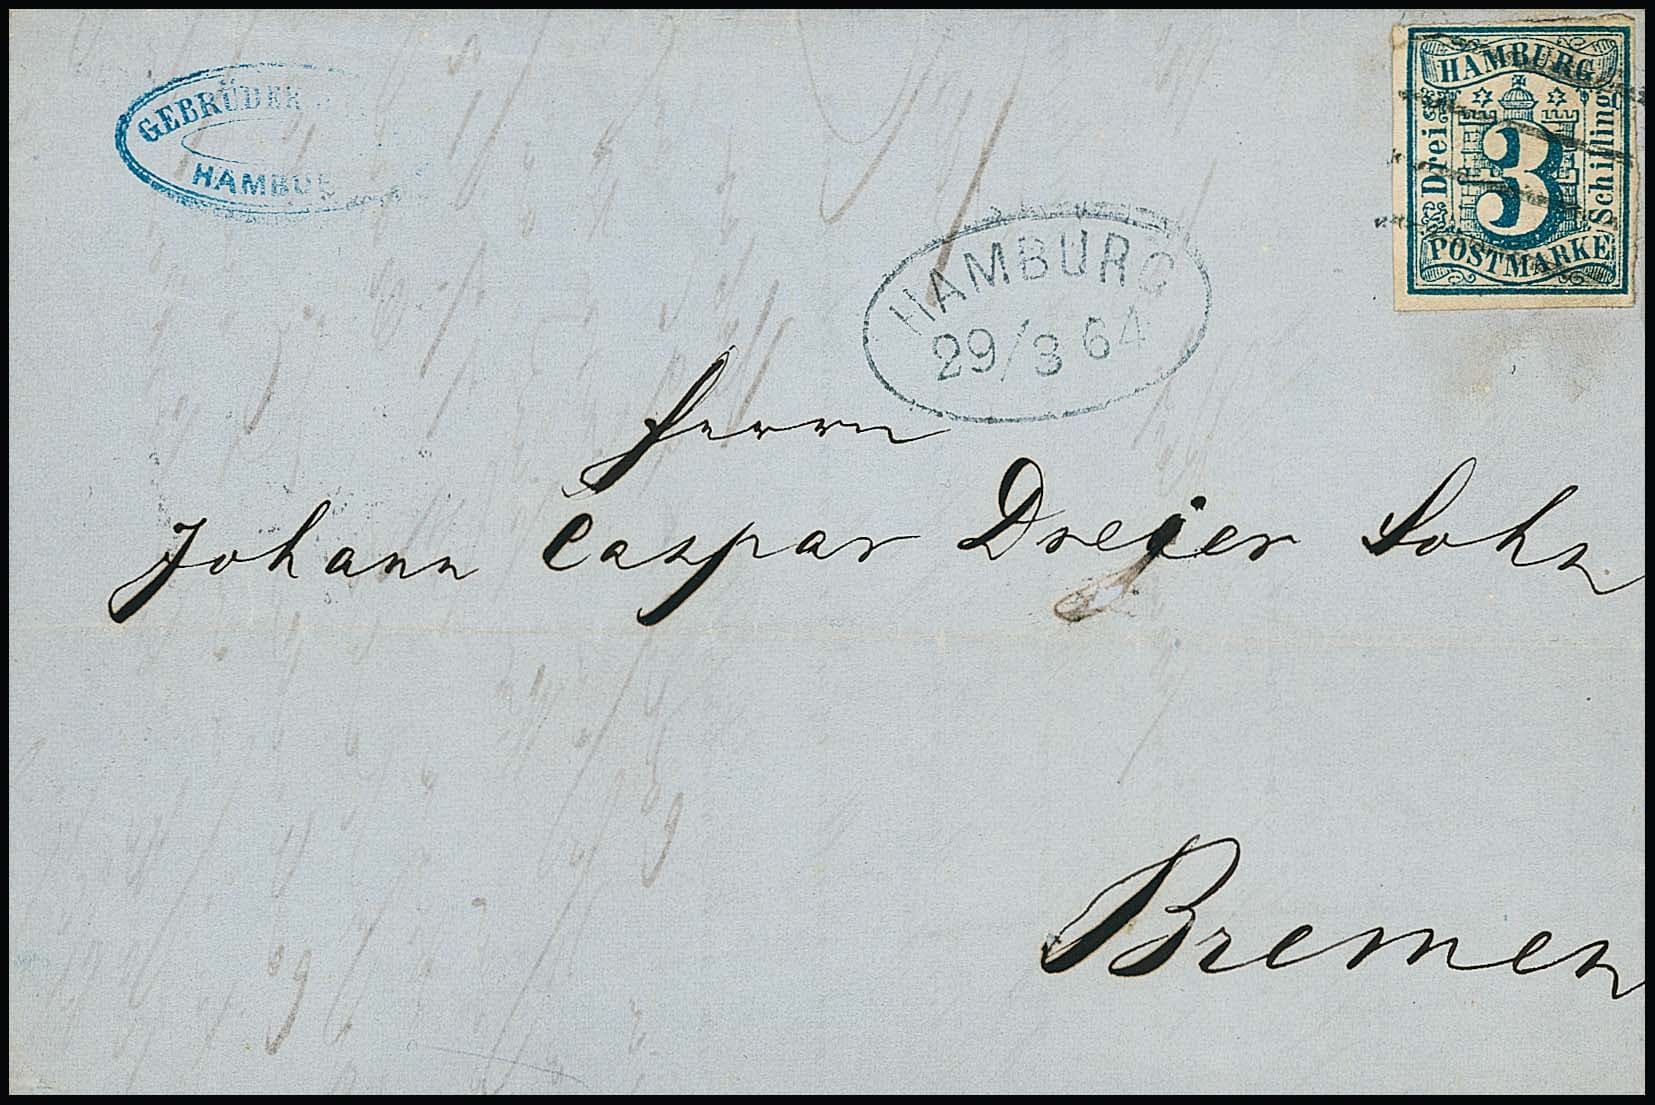 GEBRÜDER
HAMBU
HAMBURG
Drei
3
Schilling
POSTMARKE
HAMBURG
29/3 64
Herrn
Johann Caspar Dreijer Sohn
Bremen